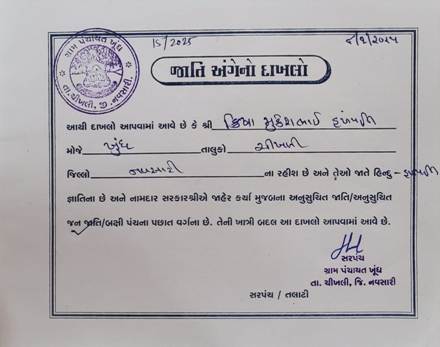 ગ્રામ પંચાયત ખૂંધ
તા. ચીખલી, જી. નવસારી
15/2025
જાતિ અંગેનો દાખલો
આથી દાખલો આપવામાં આવે છે કે શ્રી ક્રિષા મુકેશભાઈ હળપતિ
મોજે ખુંધ તાલુકો ચીખલી
જિલ્લો નવસારી ના રહીશ છે અને તેઓ જાતે હિન્દુ - હળપતિ
જ્ઞાતિના છે અને નામદાર સરકારશ્રીએ જાહેર કર્યા મુજબના અનુસુચિત જાતિ/અનુસુચિત
જન જાતિ/બક્ષી પંચના પછાત વર્ગના છે. તેની ખાત્રી બદલ આ દાખલો આપવામાં આવે છે.
સરપંચ
ગ્રામ પંચાયત ખૂંધ
તા. ચીખલી, જિ. નવસારી
સરપંચ / તલાટી